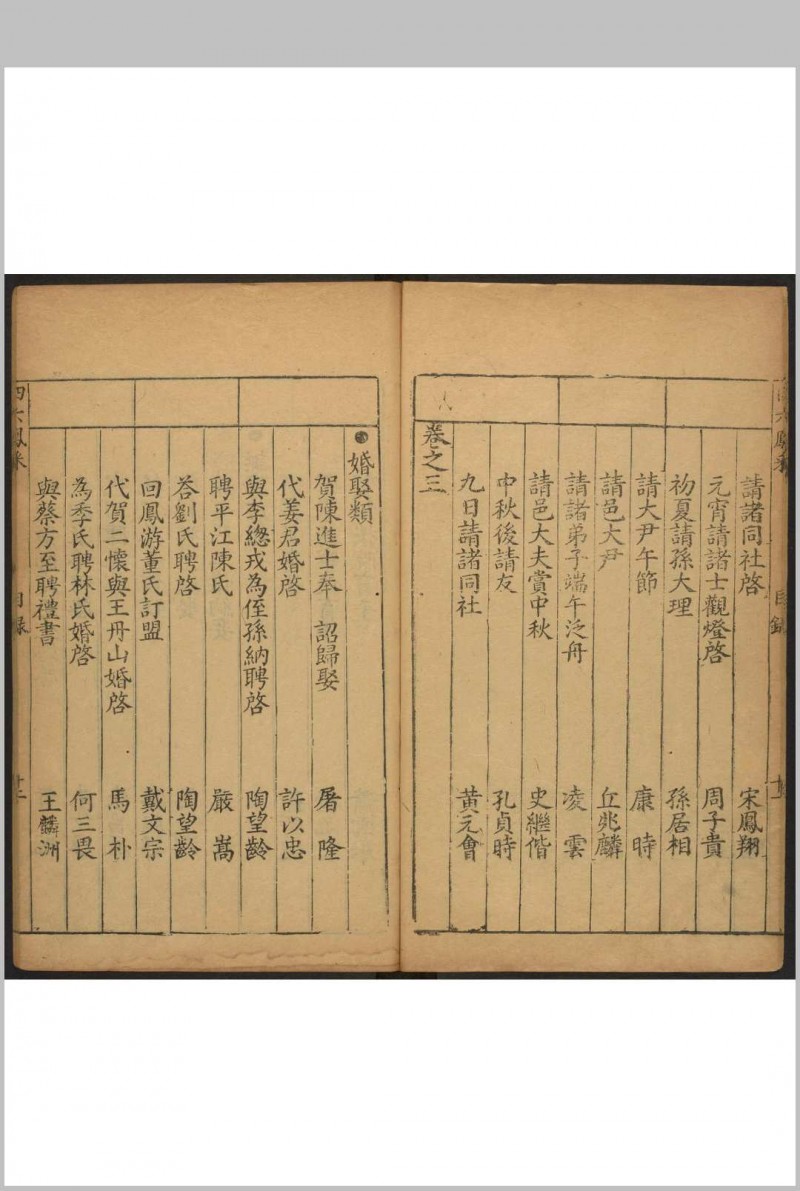 請諸同社啓 宋鳳翔
元宵請諸士觀燈啓 周子貴
初夏請孫大理 孫居相
請大尹午節 康時
請邑大尹 丘兆麟
請諸弟子端午泛舟 凌雲
請邑大夫賞中秋 史繼偕
中秋後請友 孔貞時
九日請諸同社 黃元會
卷之三
婚娶類
賀陳進士奉 詔歸娶 屠隆
代姜君婚啓 許以忠
與李總戎為侄孫納聘啓 陶望齡
聘平江陳氏 嚴嵩
荅劉氏聘啓 陶望齡
回鳳游董氏訂盟 戴文宗
代賀二懷與王丹山婚啓 馬朴
為季氏聘林氏婚啓 何三畏
與蔡方至聘禮書 王麟洲
四六鳳采 目錄